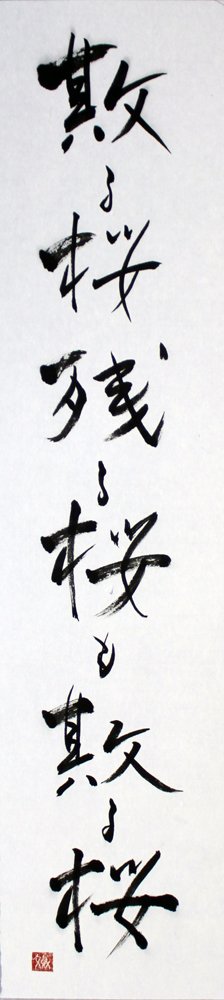 散る桜残る桜も散る桜